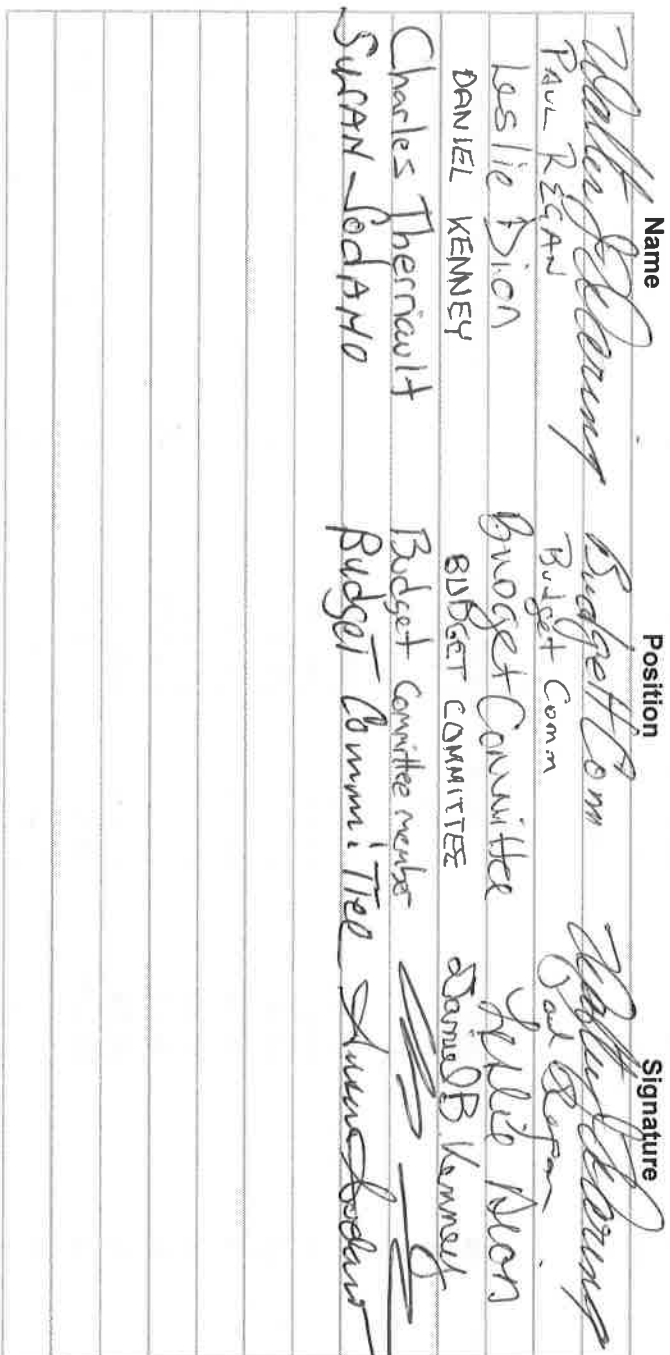 Name Position Signature
Walter Budgett Com Walter
PAUL REGAN Budget Comm Paul Regan
Leslie Dion Budget Committee Leslie Dion
DANIEL KENNEY BUDGET COMMITTEE Daniel B. Kenney
Charles Therriault Budget Committee member
SUSAN SODANO Budget Committee Susan Sodano